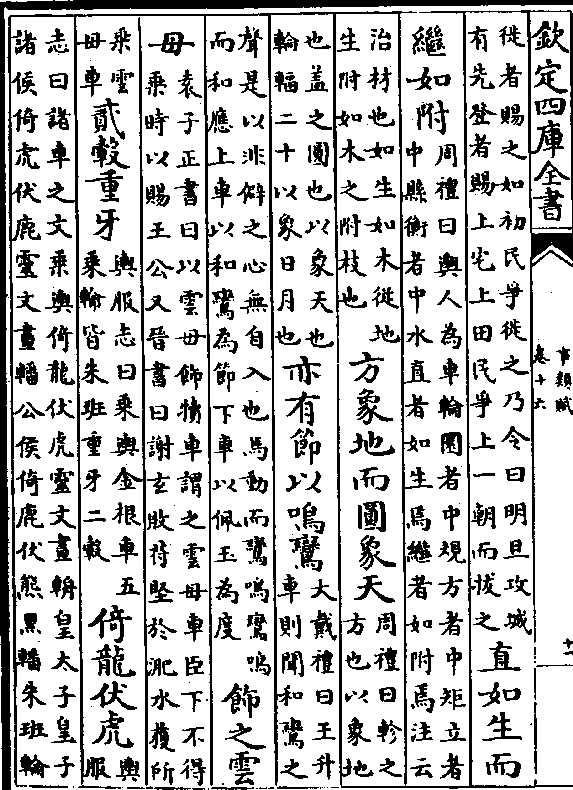 欽定四庫全書
事類賦
卷十六
十一
徙者賜之如初民爭徙之乃令曰明旦攻城
有先登者賜上宅上田民爭上一朝而拔之
直如生而
繼如附
周禮曰輿人為車輪圜者中規方者中矩立者
中縣衡者中水直者如生焉繼者如附焉注云
治材也如生如木從地
生附如木之附枝也
方象地而圓象天
周禮曰軫之
方也以象地
也蓋之圓也以象天也
輪輻二十以象日月也
亦有節以鳴鸞
大戴禮曰王升
車則聞和鸞之
聲是以非僻之心無自入也馬動而鸞鳴鸞鳴
而和應上車以和鸞為節下車以佩玉為度
飾之雲
母
袁子正書曰以雲母飾犢車謂之雲母車臣下不得
乗時以賜王公又晉書曰謝玄敗苻堅於淝水獲所
乗雲
母車
貳轂重牙
輿服志曰乗輿金根車五
乗輪皆朱班重牙二轂
倚龍伏虎
輿
服
志曰諸車之文乗輿倚龍伏虎靈文畫輈皇太子皇子
諸侯倚虎伏鹿靈文畫轓公侯倚鹿伏熊黒轓朱班輪